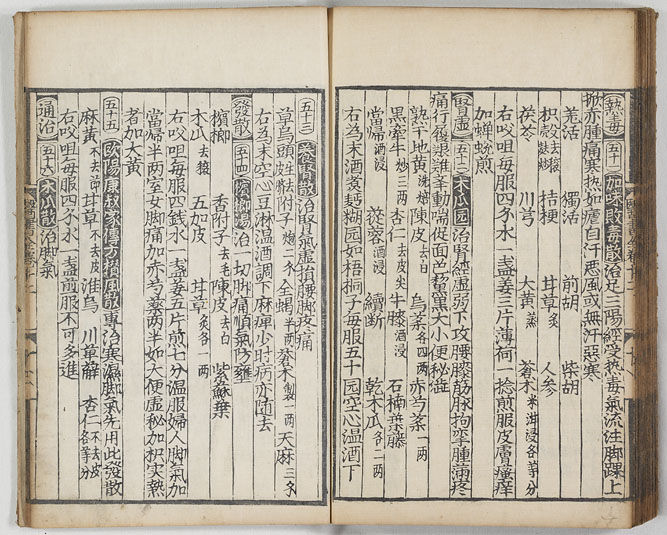 熱毒 五十一 加味敗毒散治足三陽經受熱毒氣流注脚踝上
掀亦腫痛寒熱如瘧自汗惡風或無汗惡寒
羗活 獨活 前胡 柴胡
枳殻去穰麩炒 桔梗 甘草炙 人參
茯苓 川芎 大黄蒸 蒼术米泔浸各等分
右㕮咀每服四錢水一盞姜三片薄荷一捻煎服皮膚瘙痒
加蟬蛻煎
腎虚 五十二 木瓜圎治腎經虚弱下攻腰膝筋脉拘攣腫滿疼
痛行履艱難喘促面色黧黒大小便秘澁
熟干地黄洗焙 陳皮去白 烏藥各四兩 赤芍藥一兩
黒牽牛炒三兩 杏仁去皮尖 牛膝酒浸 石楠藤
當歸酒浸 蓯蓉酒浸 續断 乾木瓜各二兩
右為末酒煮麪糊园如梧桐子每服五十园空心温酒下
五十三 養腎散治腎氣虚損腰脚疼痛
草烏頭 附子炮二錢 全蝎半兩 蒼术製一兩 天麻三錢
右為末空心豆淋温酒調下麻痺少時病亦随去
發散 五十四 檳榔湯治一切脚痛順氣防壅
檳榔 香附子去毛 陳皮去白 紫蘇葉
木瓜去穰 五加皮 甘草炙各一兩
右㕮咀每服四錢水一盞姜五片煎七分温服婦人脚氣加
當歸半兩室女脚痛加赤芍藥两半如大便虚秘加枳实熱
者加大黄
五十五 歐陽康叔家傳方積風散專治寒濕脚氣先用此發散
麻黄不去節 甘草不去皮 淮烏 川萆薢 杏仁不去皮各等分
右㕮咀每服四錢水一盞煎服不可多進
通治 五十六 木瓜散治脚氣